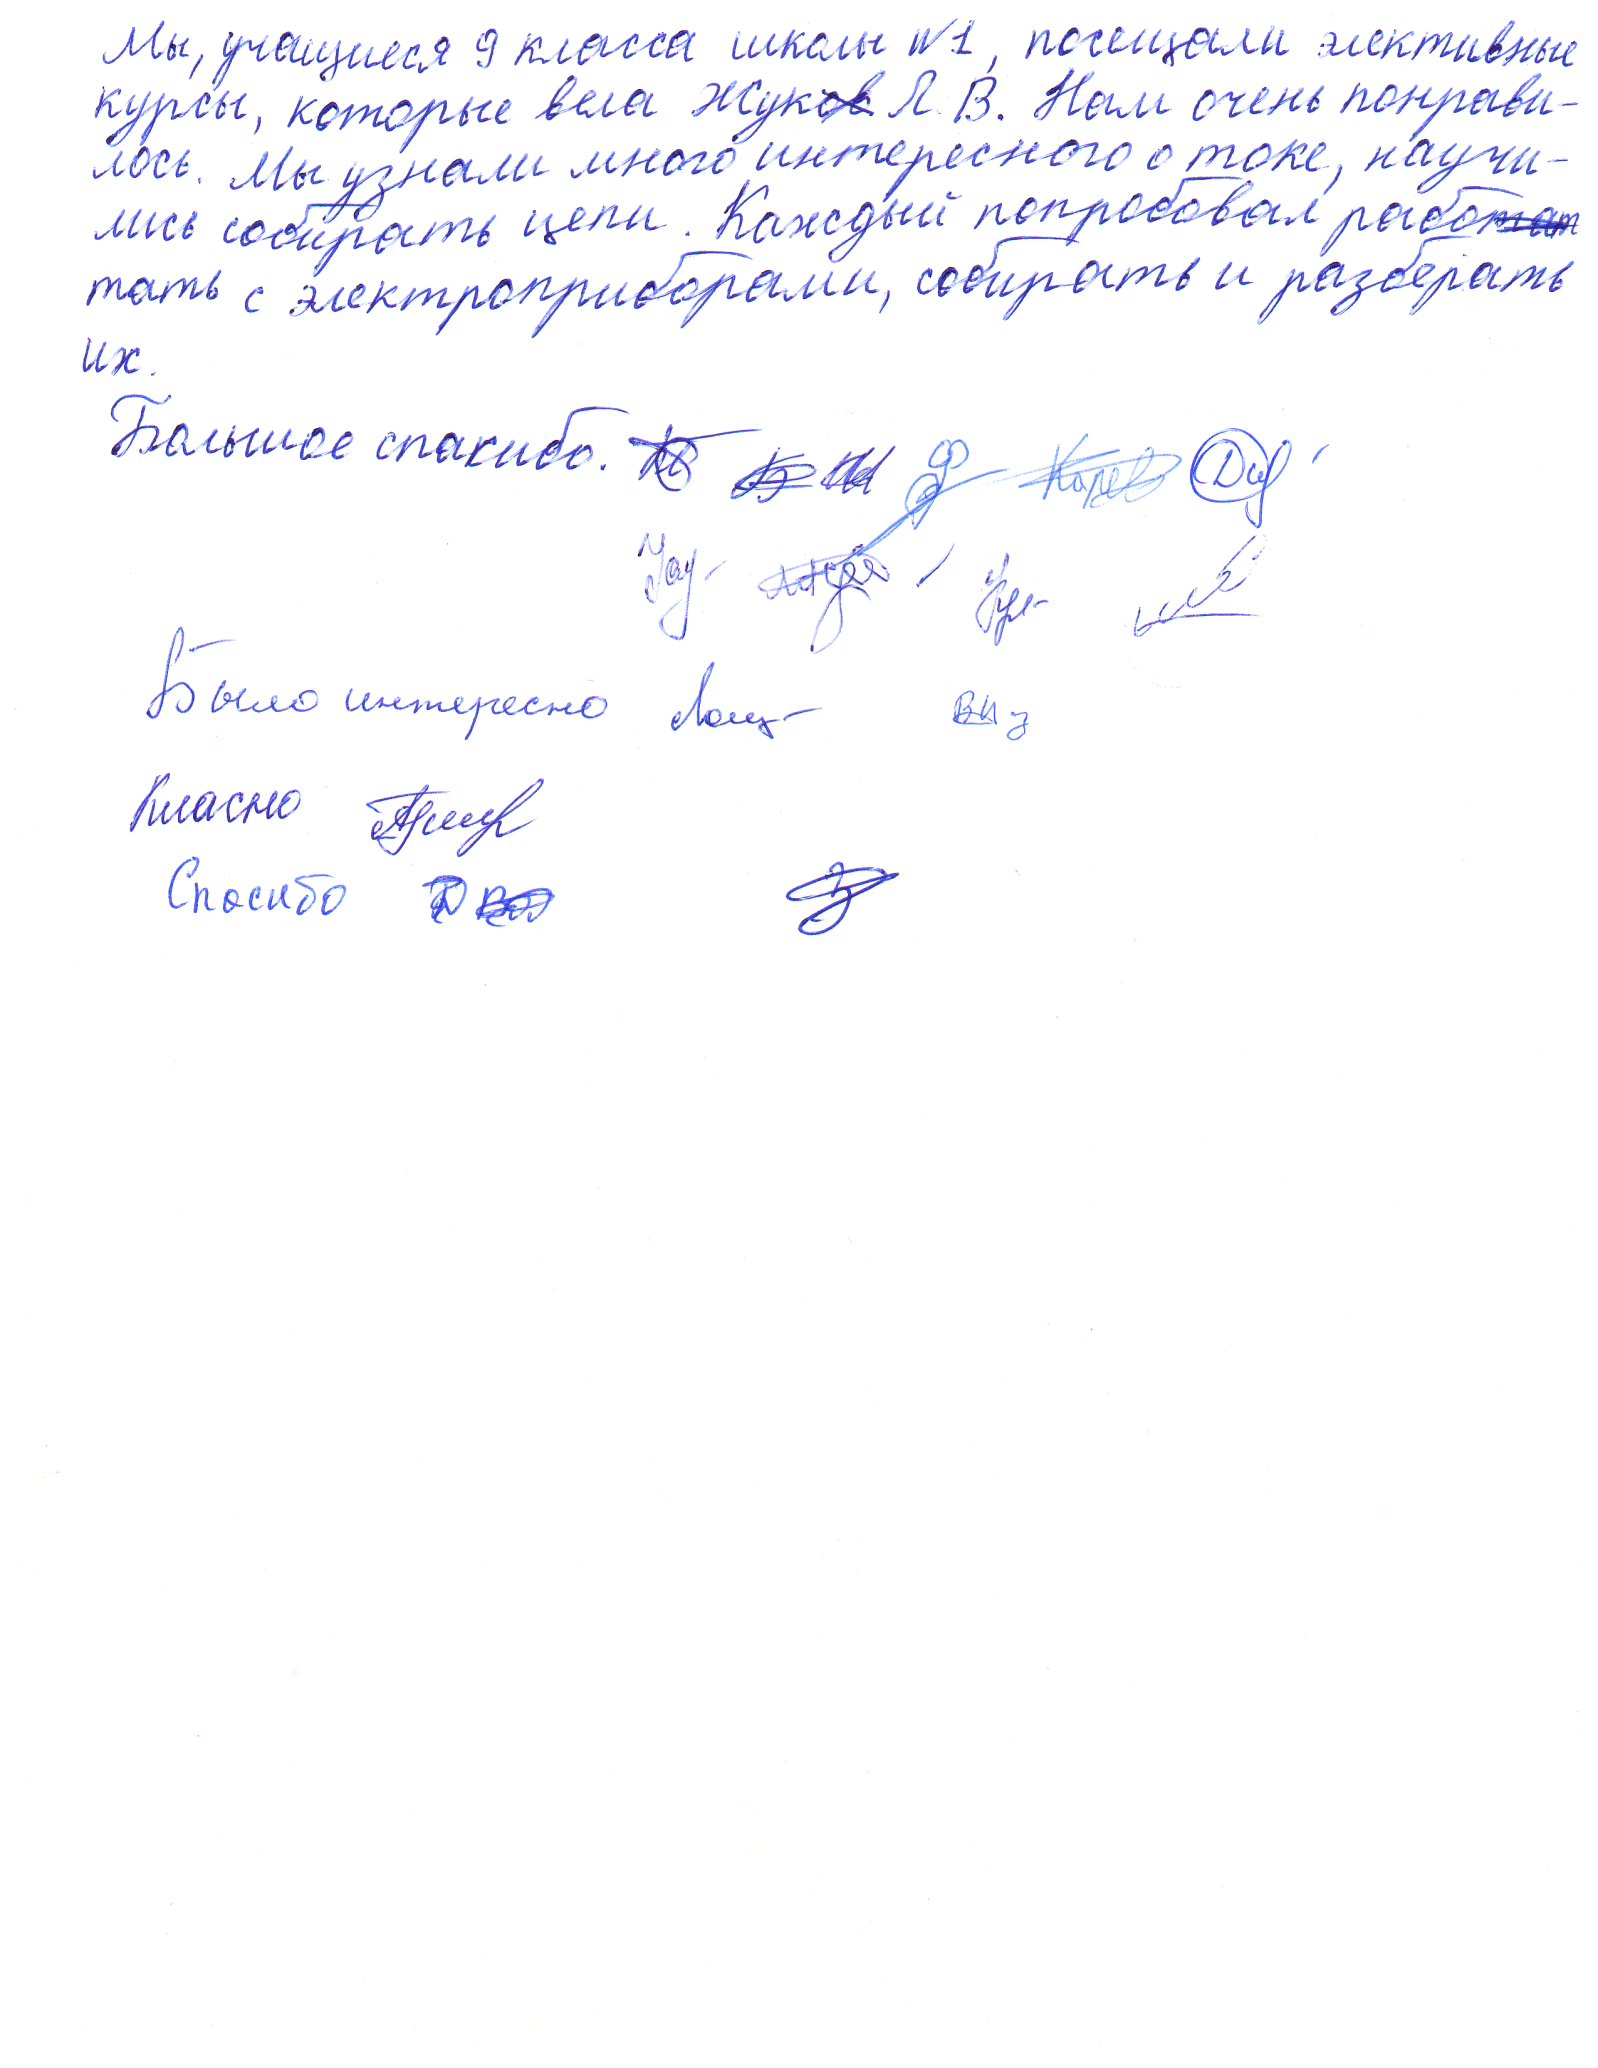 Мы, учащиеся 9 класса школы №1, посещали элективные
курсы, которые вела Жуков Л. В. Нам очень понрави-
лось. Мы узнали много интересного о токе, научи-
лись собирать цепи. Каждый попробовал рабо
тать с электроприборами, собирать и разберать
их.
Большое спасибо.
Было интересно
Класно
Спасибо